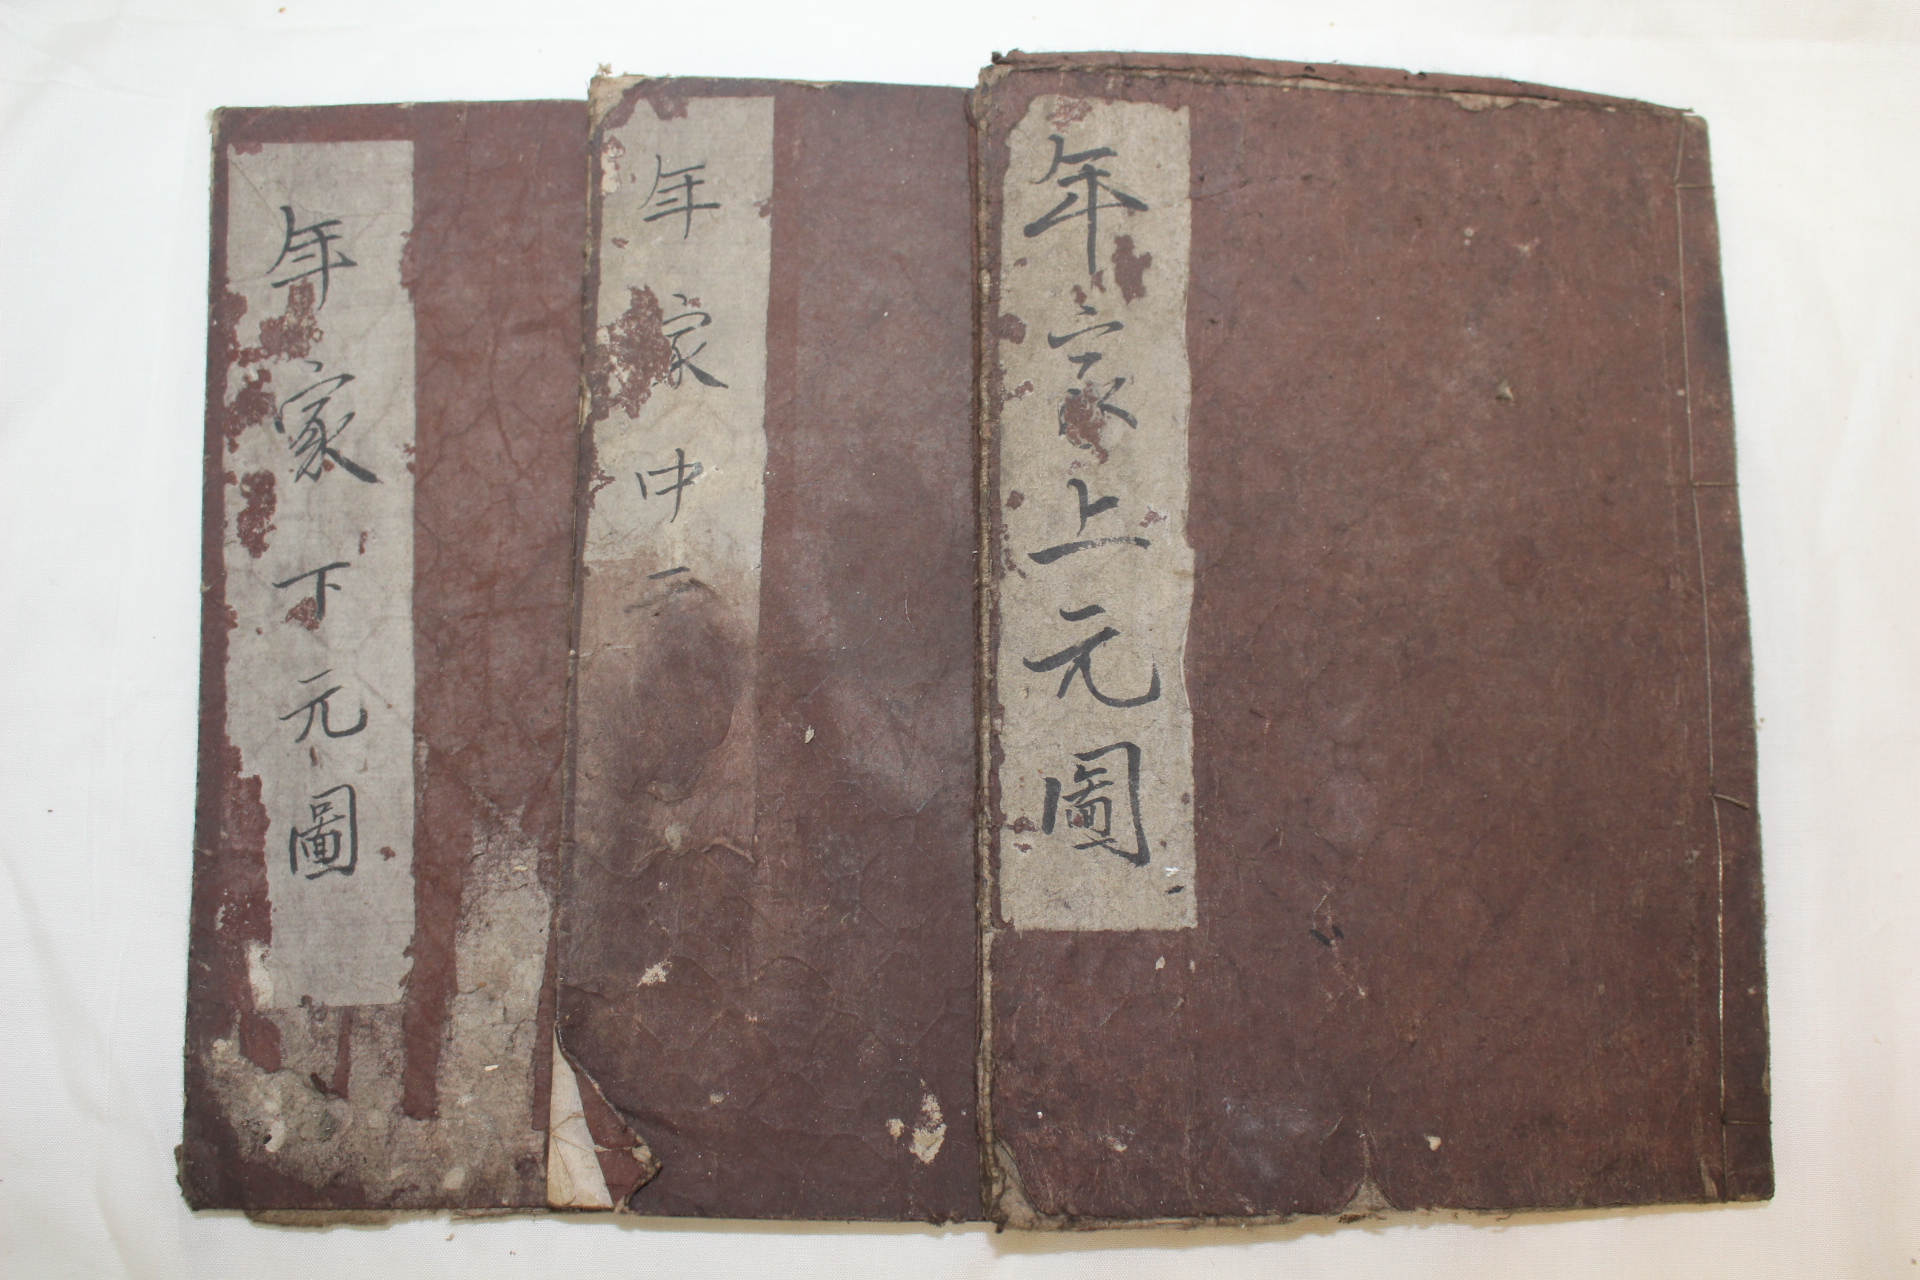 年家上元圖
年家中元
年家下元圖